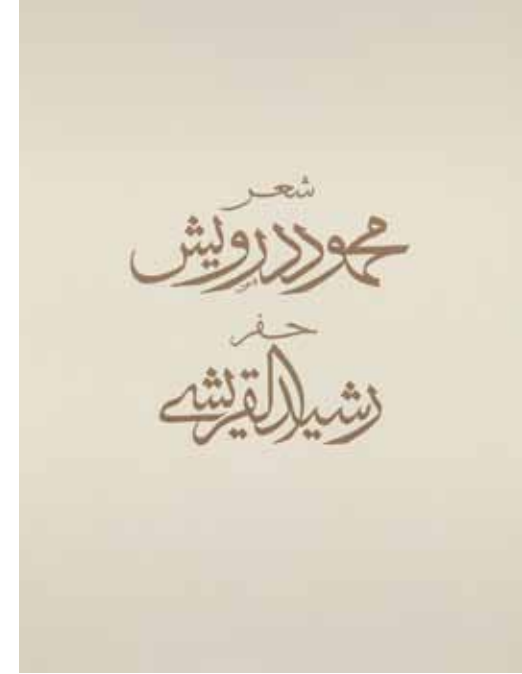 شعر
محمود درويش
حفر
رشيد القريشي